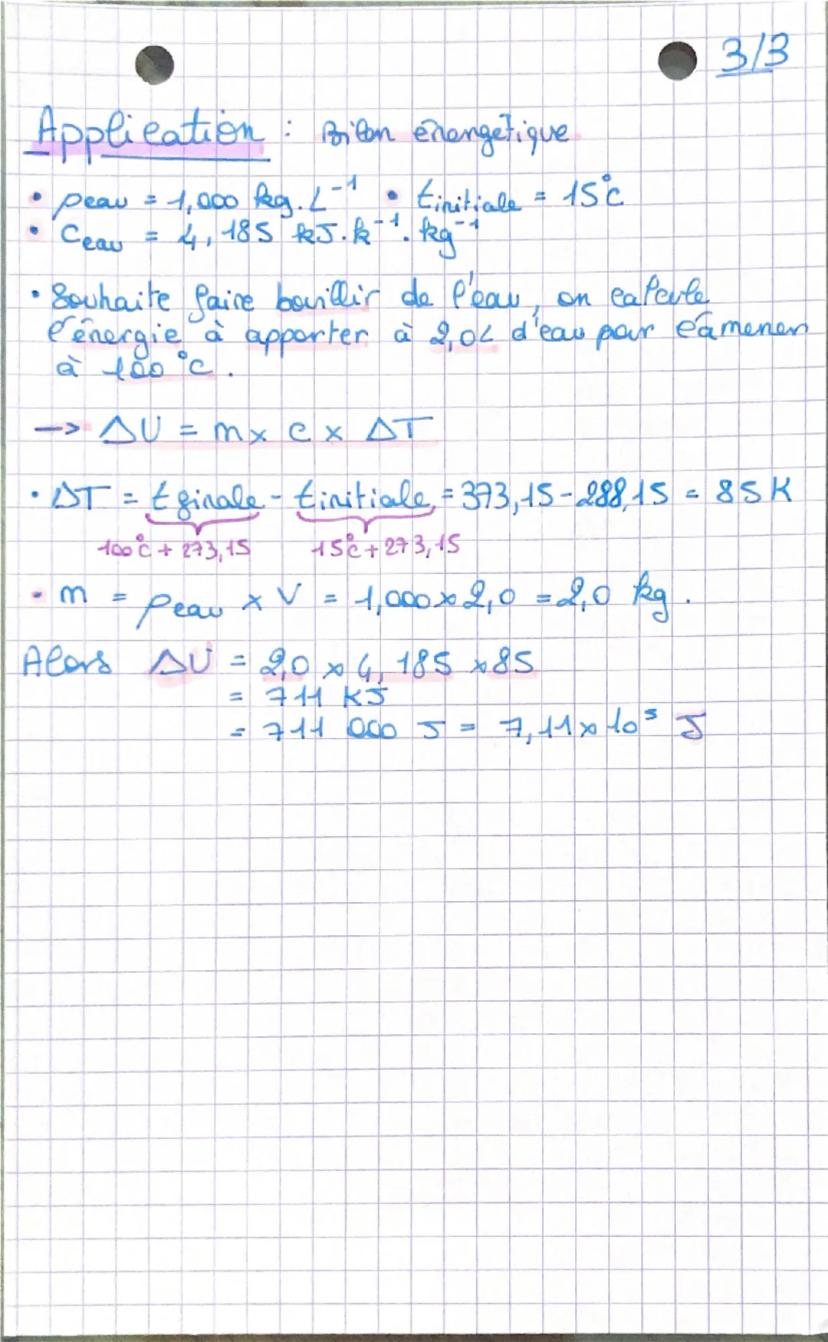 3/3
Application : Bilan énergetique
• ρeau = 1,000 kg.L⁻¹ • tinitiale = 15°C
• Ceau = 4,185 kJ.k⁻¹.kg⁻¹
• Souhaite faire bouillir de l'eau, on calcule
l'énergie à apporter à 2,0L d'eau pour l'amener
à 100 °C.
→ ΔU = m x c x ΔT
• ΔT = tfinale - tinitiale = 373,15 - 288,15 = 85 K
100°C + 273,15 15°C + 273,15
• m = ρeau x V = 1,000 x 2,0 = 2,0 kg.
Alors ΔU = 2,0 x 4,185 x 85
= 711 KJ
= 711 000 J = 7,11 x 10⁵ J